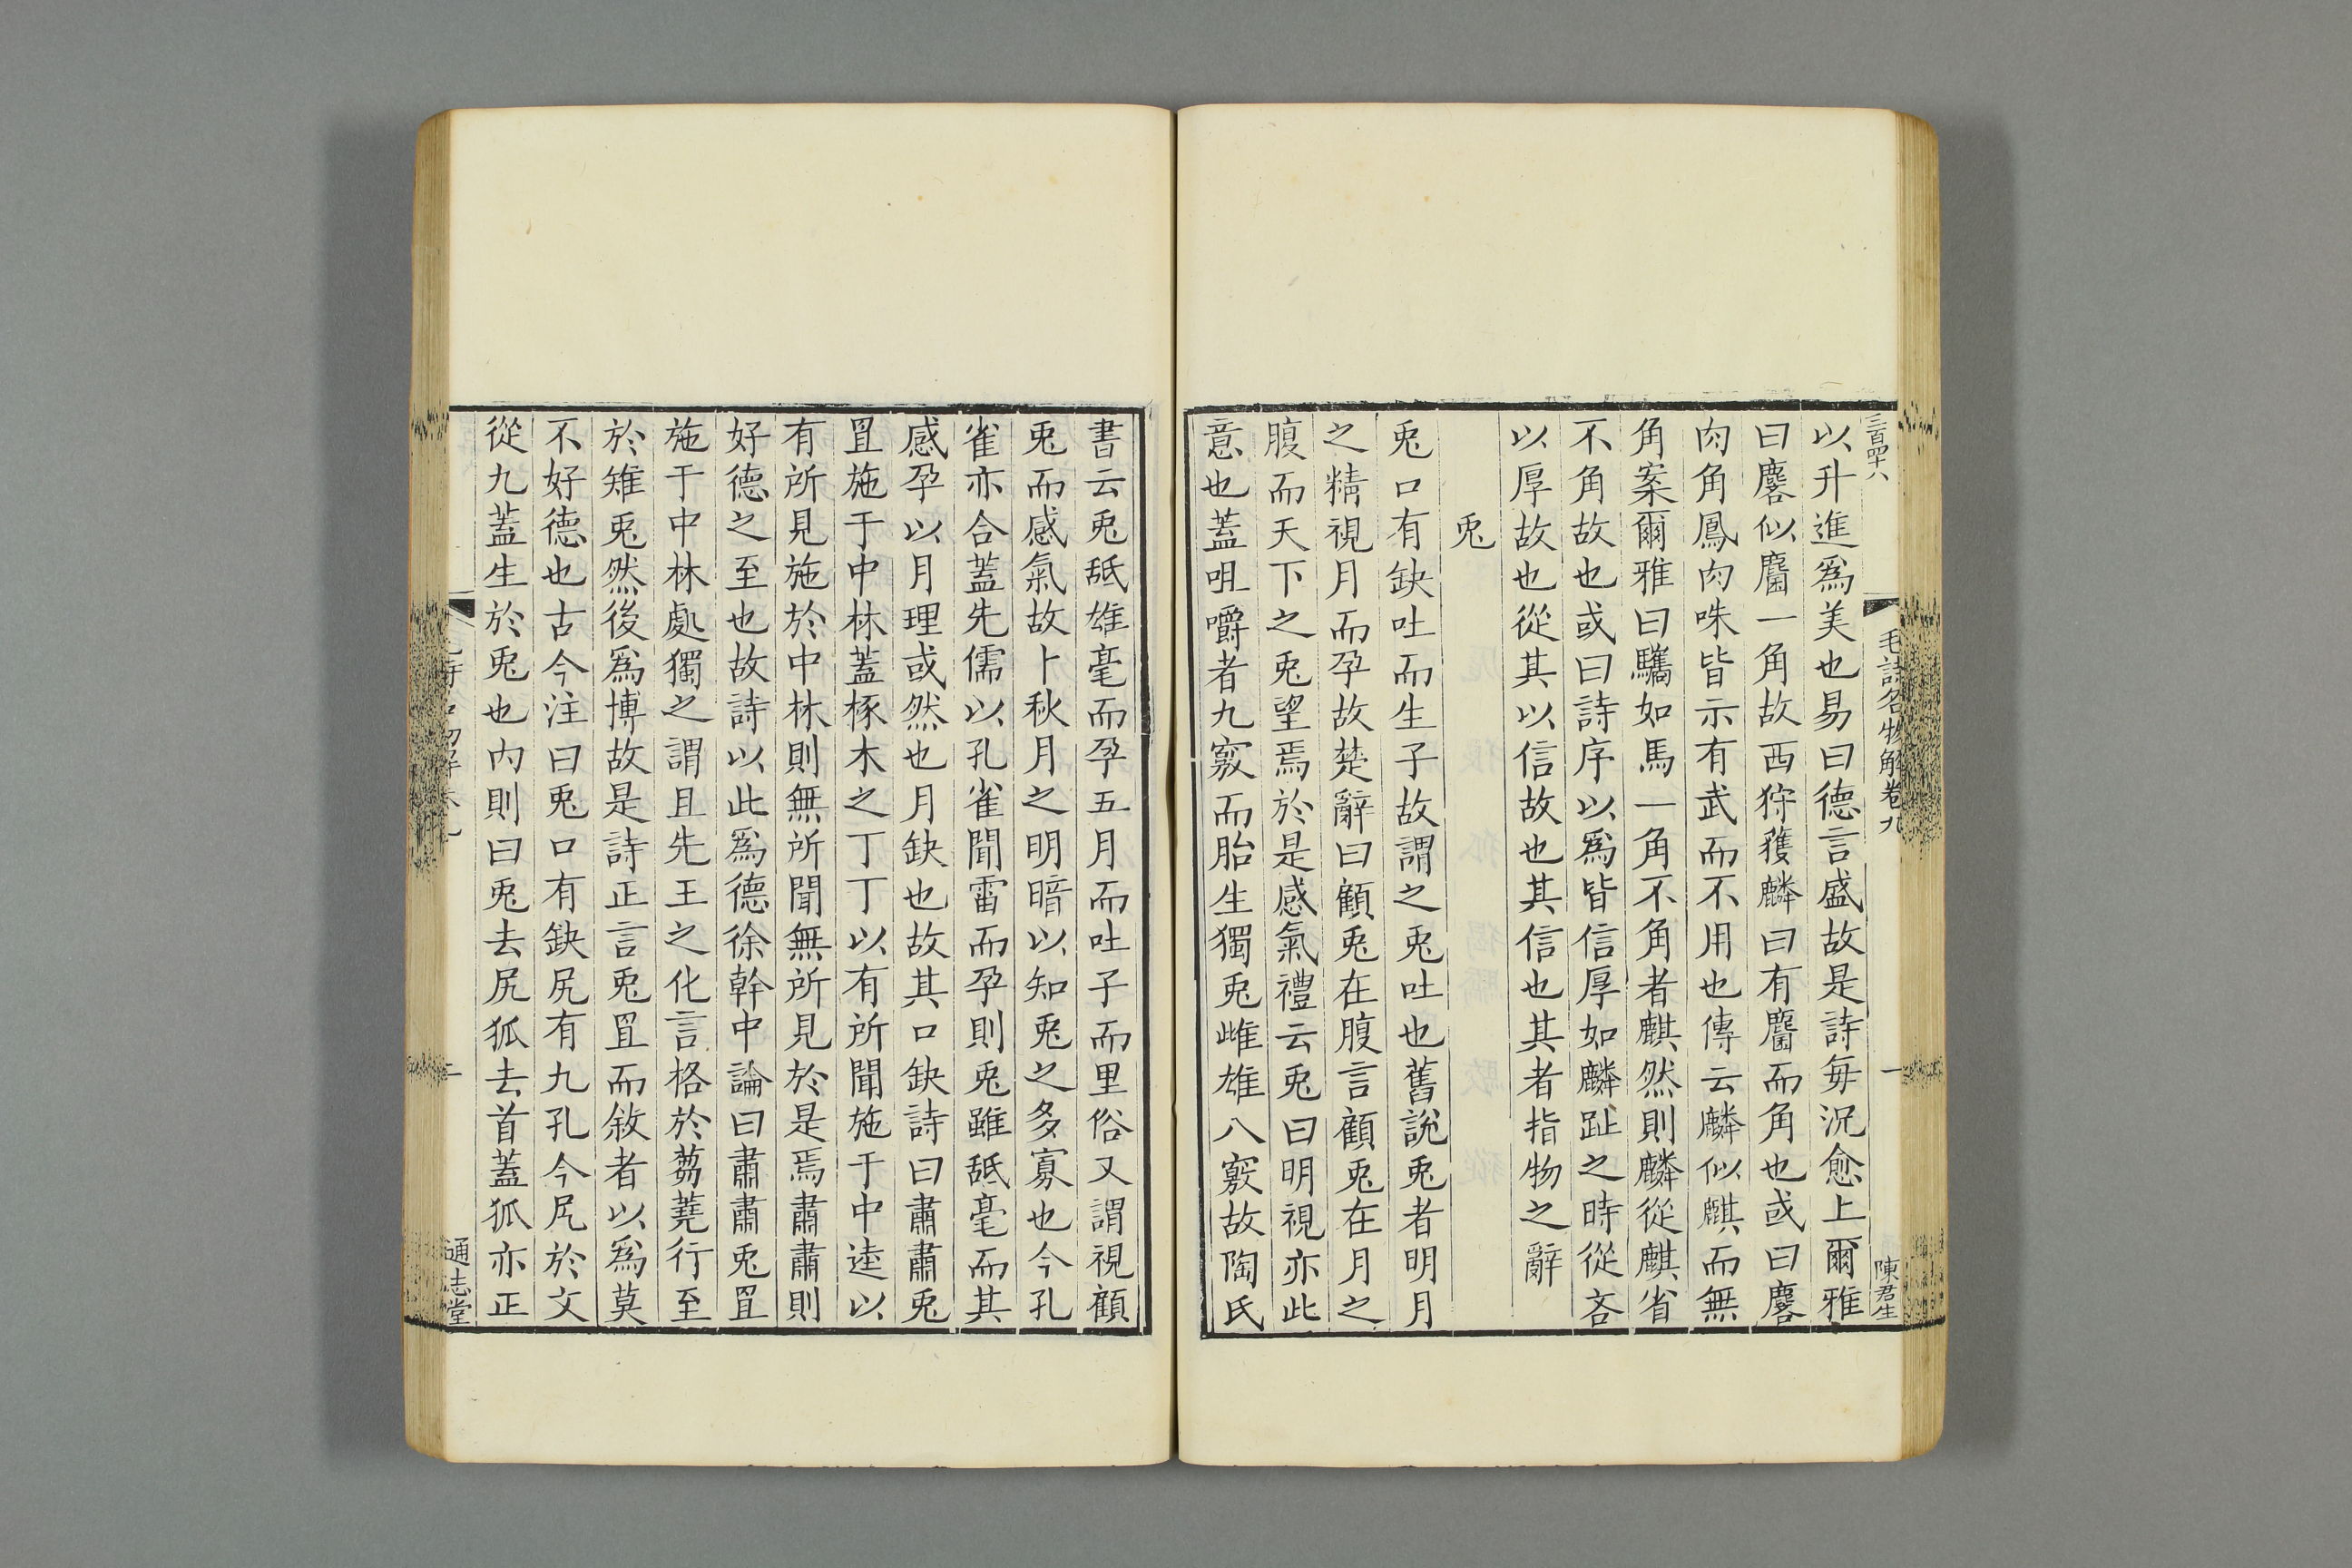 三百四十八
毛詩名物解卷九
一
陳君生
以升進爲美也易曰德言盛故是詩每況愈上爾雅
曰麐似麕一角故西狩獲麟曰有麕而角也或曰麐
肉角鳳肉咮皆示有武而不用也傳云麟似麒而無
角案爾雅曰驨如馬一角不角者麒然則麟從麒省
不角故也或曰詩序以爲皆信厚如麟趾之時從吝
以厚故也從其以信故也其信也其者指物之辭
兎
兎口有缺吐而生子故謂之兎吐也舊說兎者明月
之精視月而孕故楚辭曰顧兎在腹言顧兎在月之
腹而天下之兎望焉於是感氣禮云兎曰明視亦此
意也蓋咀嚼者九竅而胎生獨兎雌雄八竅故陶氏
書云兎舐雄毫而孕五月而吐子而里俗又謂視顧
兎而感氣故卜秋月之明暗以知兎之多寡也今孔
雀亦合蓋先儒以孔雀聞雷而孕則兎雖舐毫而其
感孕以月理或然也月缺也故其口缺詩曰肅肅兎
罝施于中林蓋椓木之丁丁以有所聞施于中逵以
有所見施於中林則無所聞無所見於是焉肅肅則
好德之至也故詩以此爲德徐幹中論曰肅肅兎罝
施于中林處獨之謂且先王之化言格於蒭蕘行至
於雉兎然後爲博故是詩正言兎罝而敘者以爲莫
不好德也古今注曰兎口有缺尻有九孔今尻於文
從九蓋生於兎也内則曰兎去尻狐去首蓋狐亦正
二
通志堂